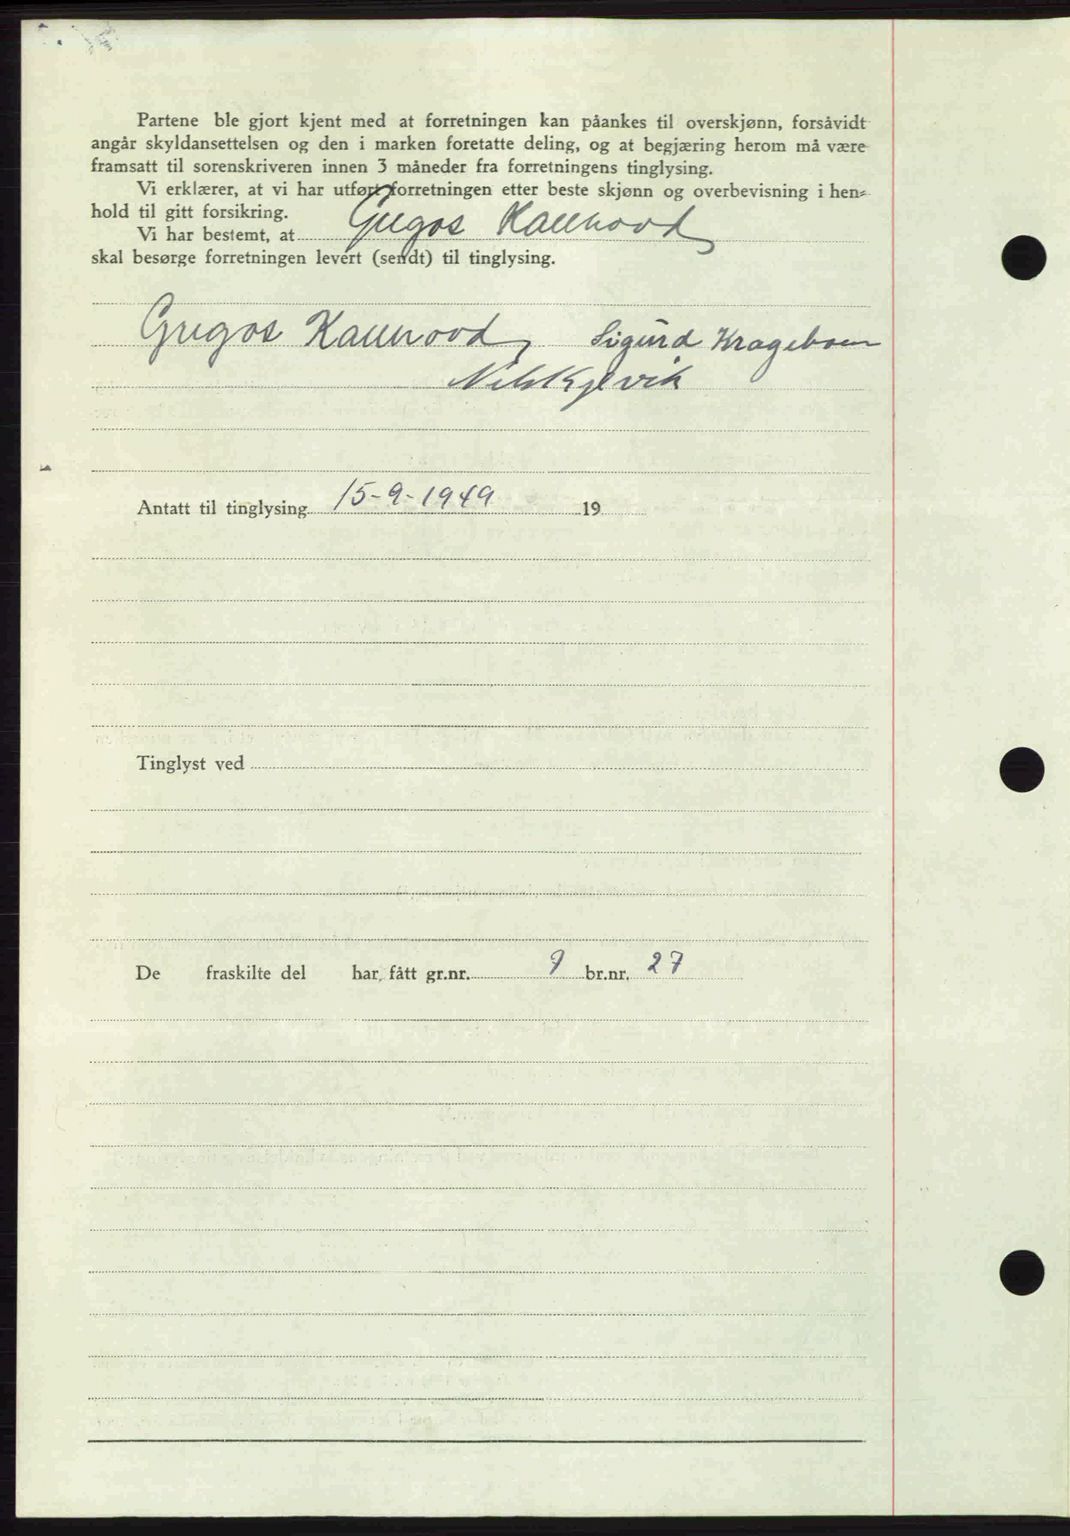 Partene ble gjort kjent med at forretningen kan påankes til overskjønn, forsåvidt
angår skyldansettelsen og den i marken foretatte deling, og at begjæring herom må være
framsatt til sorenskriveren innen 3 måneder fra forretningens tinglysing.
Vi erklærer, at vi har utført forretningen etter beste skjønn og overbevisning i hen-
hold til gitt forsikring.
Vi har bestemt, at
skal besørge forretningen levert (sendt) til tinglysing.
Sigurd
Antatt til tinglysing 15-9-1949 19
Tinglyst ved
De fraskilte del har fått gr.nr. 9 br.nr. 27